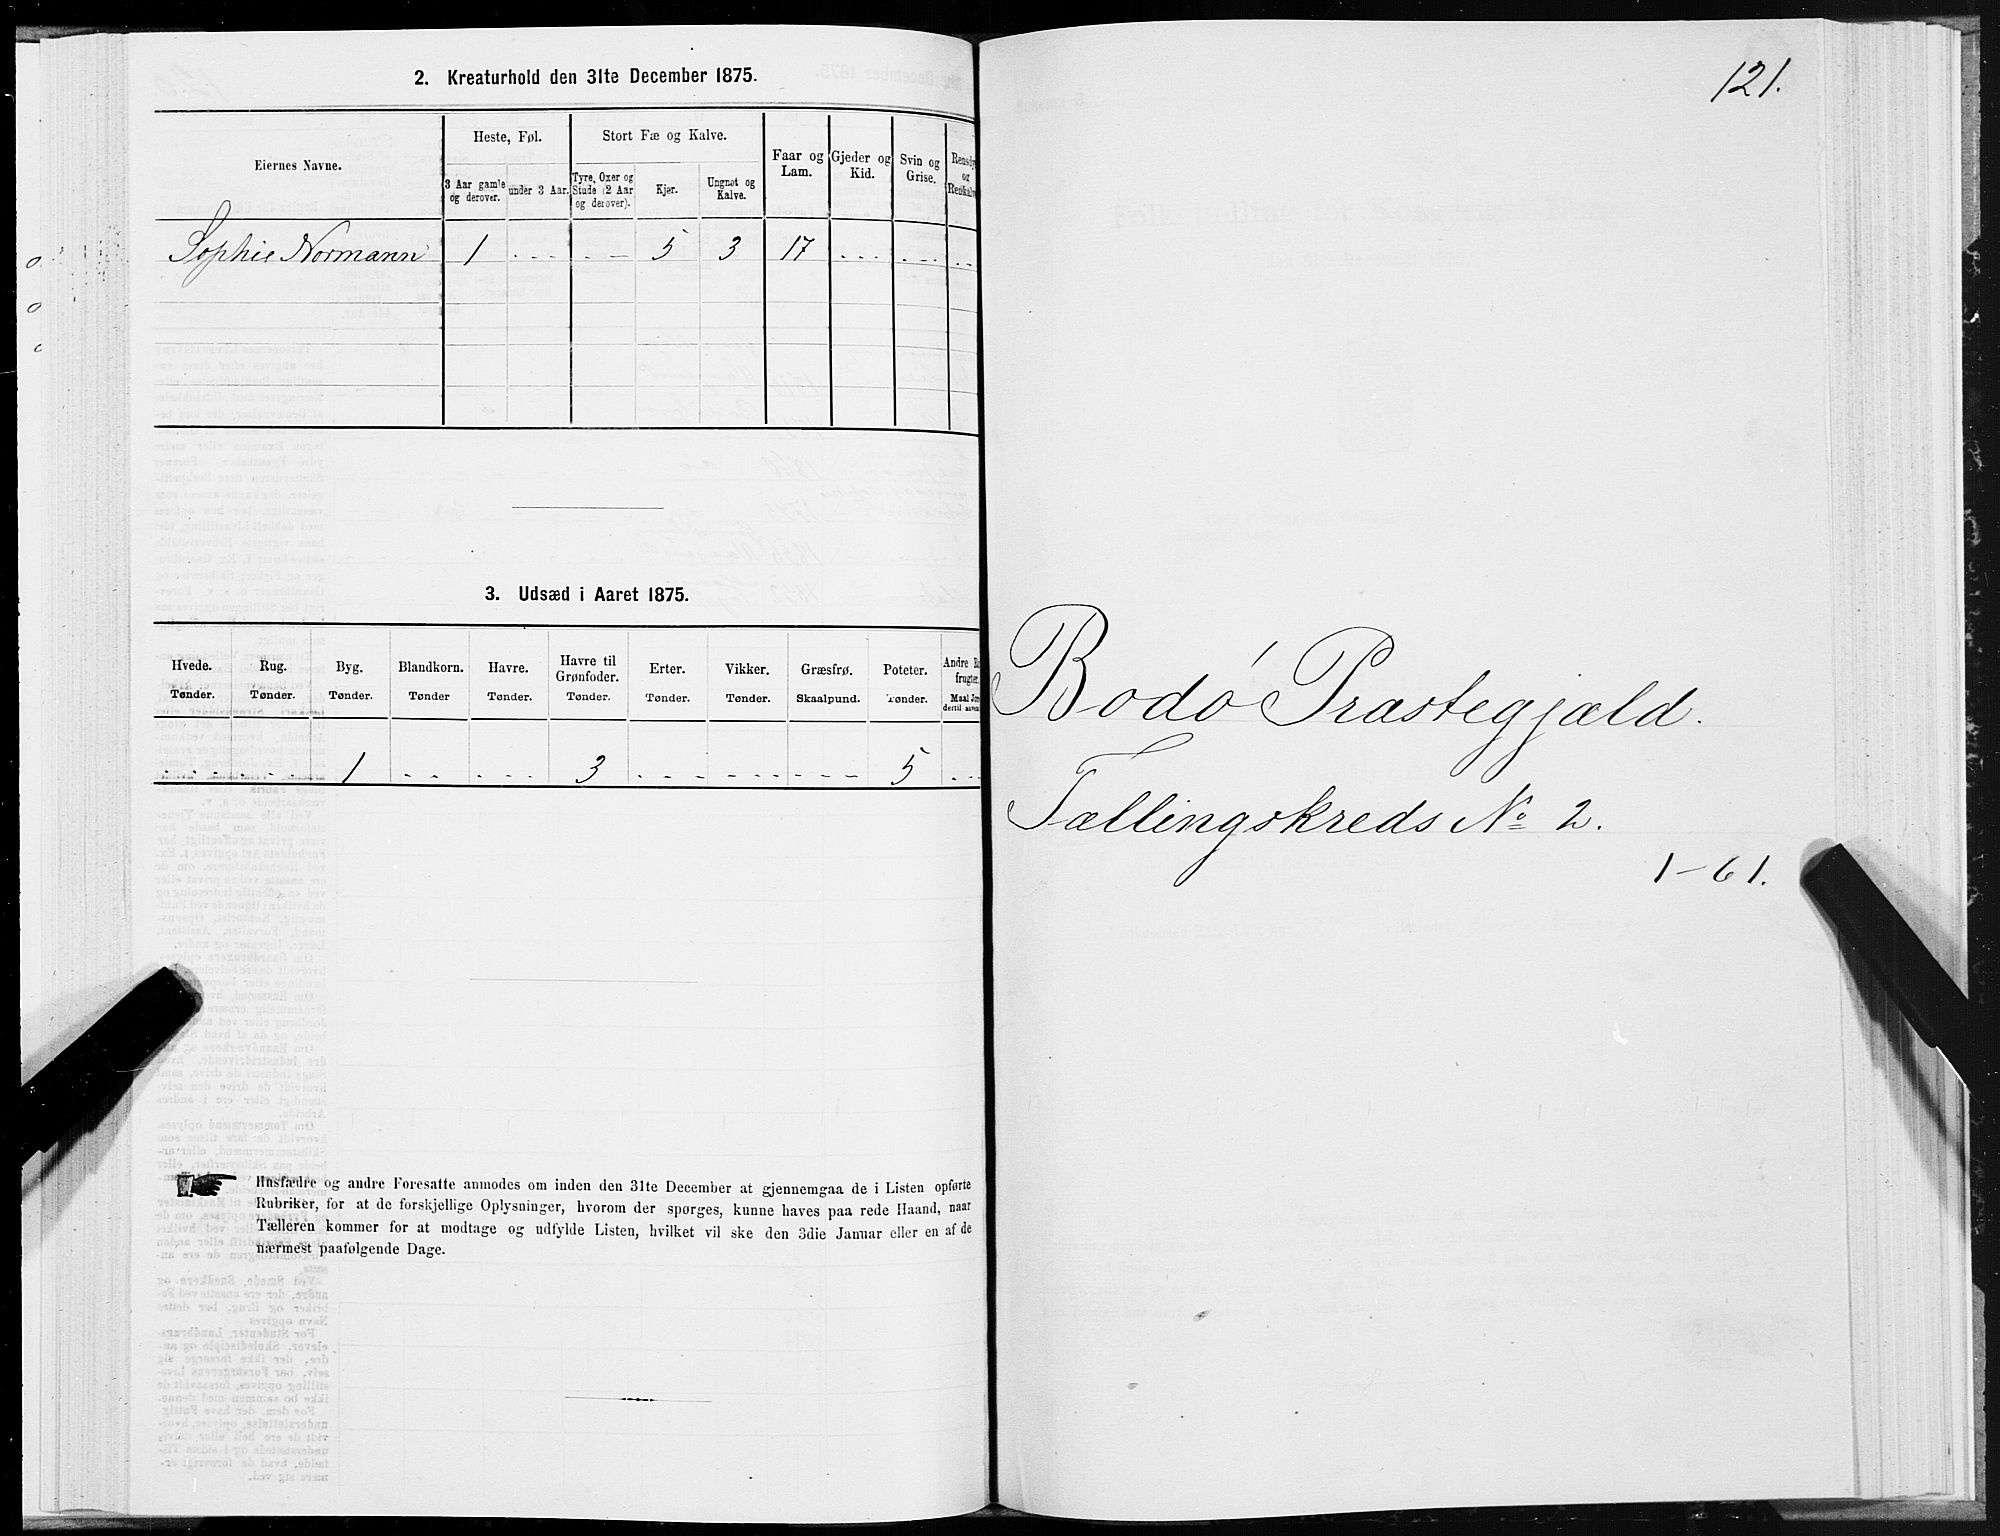 2. Kreaturhold den 31te December 1875.
Eiernes Navne.
Heste, Føl.
Stort Fæ og Kalve.
Faar og Lam.
Gjeder og Kid.
Svin og Grise.
og
3 Aar gamle og derover.
under 3 Aar.
Tyre, Oxer og Stude (2 Aar og derover).
Kjør.
Ungnøt og Kalve.
Sophie Normann 1 . - . - . - - 5 3 17 . - . - . . - . - . . - -
3. Udsæd i Aaret 1875.
Hvede. Rug. Byg. Blandkorn. Havre. Havre til Grønfoder. Erter. Vikker. Græsfrø. Poteter. Andre
Tønder. Tønder. Tønder. Tønder Tønder. Tønder. Tønder. Tønder. Skaalpund. Tønder. Maal
1 3 5
Husfædre og andre Foresatte anmodes om inden den 31te December at gjennemgaa de i Listen opførte
Rubriker, for at de forskjellige Oplysninger, hvorom der spørges, kunne haves paa rede Haand, naar
Tælleren kommer for at modtage og udfylde Listen, hvilket vil ske den 3die Januar eller en af de
nærmest paafølgende Dage.
121.
Bodø Præstegjæld.
Tællingskreds No 2.
1-61.